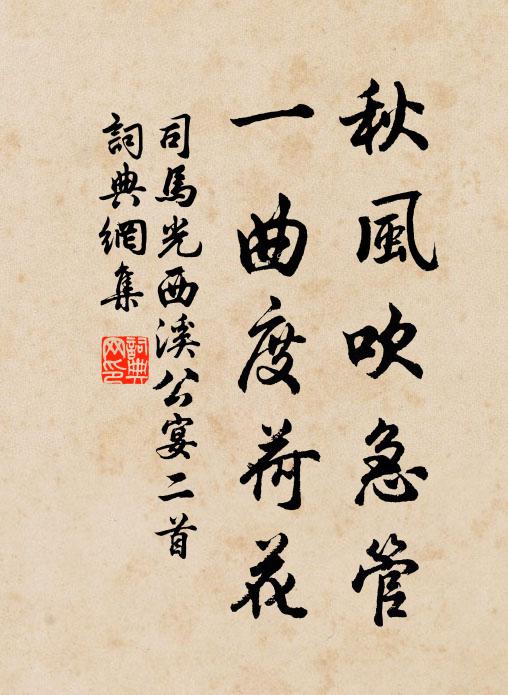 秋風吹急管
一曲度荷花
司馬光西溪公宴二首
詞典網集
詞典
网印